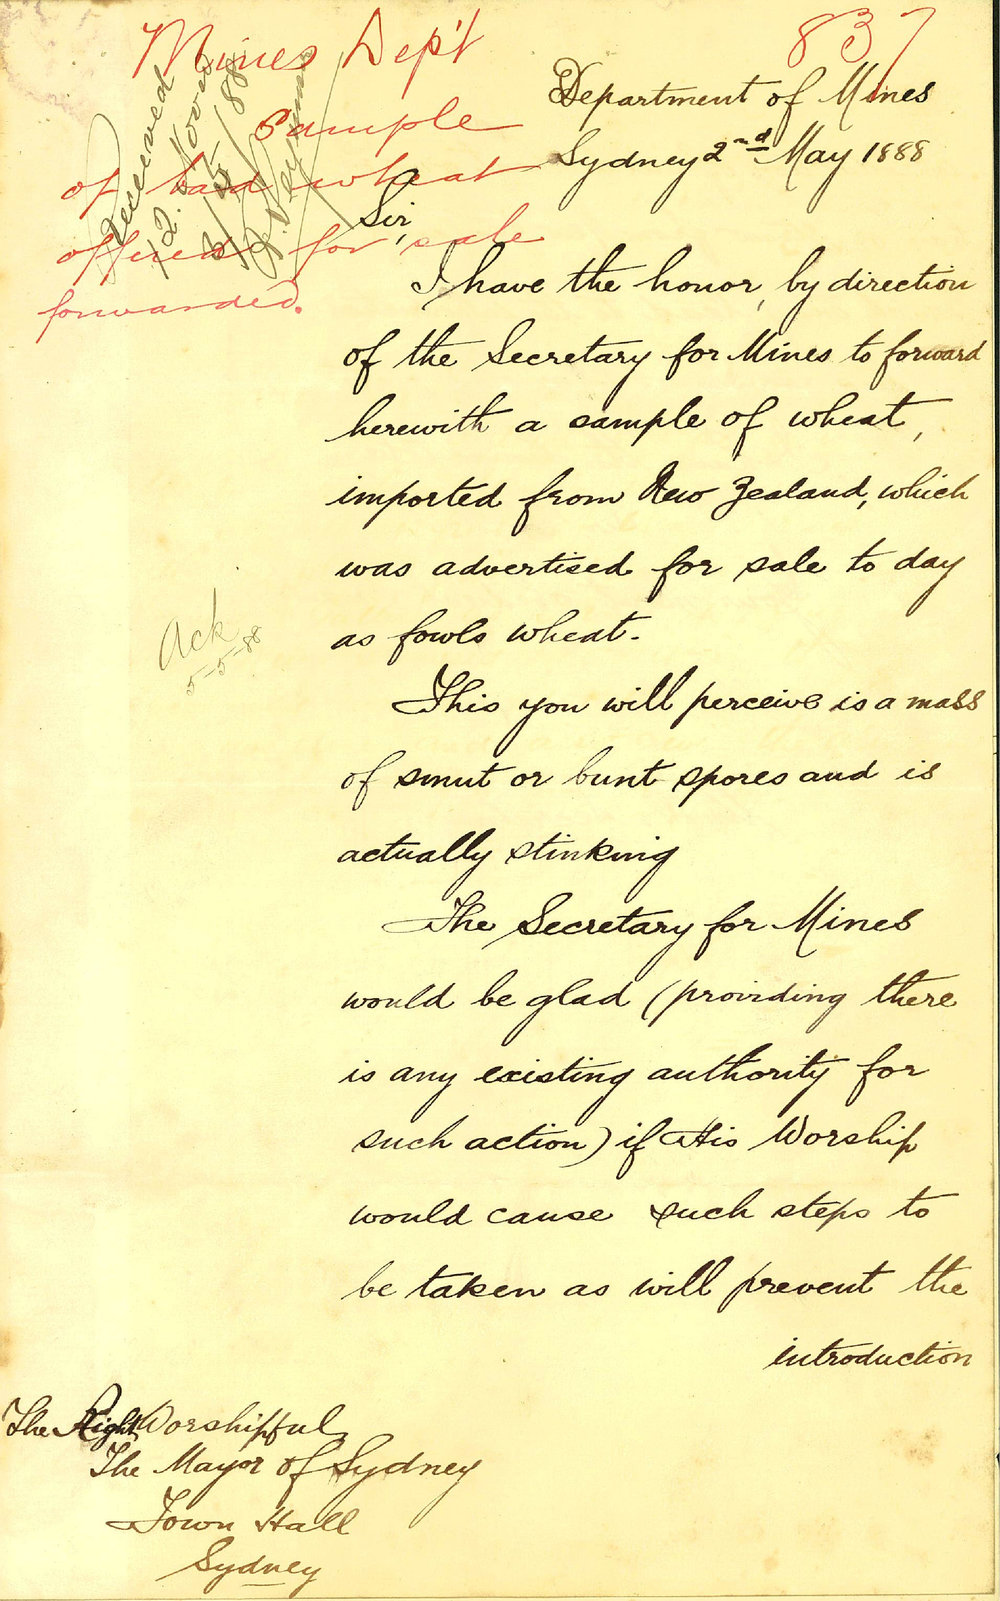 Mines Dep't
837
Sample
of bad wheat
offered for sale
forwarded.
Received
12. Noon
3/5/88
Department of Mines
Sydney 2nd May 1888
Sir,
I have the honor, by direction
of the Secretary for Mines to forward
herewith a sample of wheat,
imported from New Zealand, which
was advertised for sale to day
as fowls wheat.
Ack
5-5-88
This you will perceive is a mass
of smut or bunt spores and is
actually stinking
The Secretary for Mines
would be glad (providing there
is any existing authority for
such action) if His Worship
would cause such steps to
be taken as will prevent the
introduction
The Right Worshipful
The Mayor of Sydney
Town Hall
Sydney